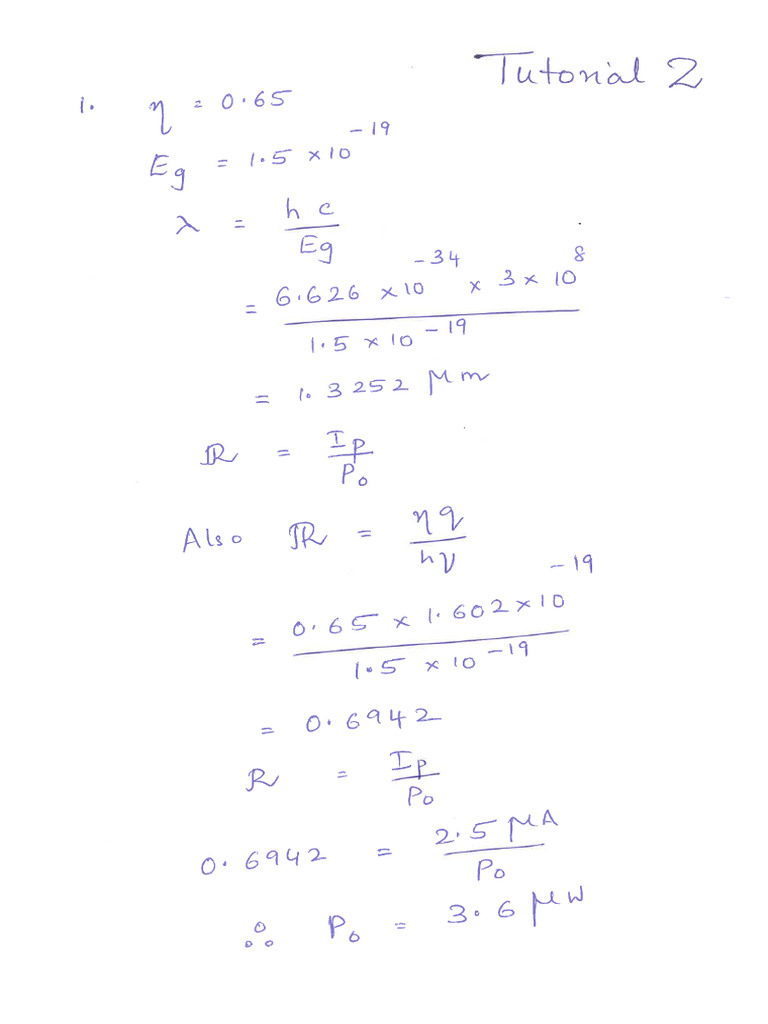 Tutorial 2
1. η = 0.65
Eg = 1.5 × 10^-19
λ = hc / Eg
= 6.626 × 10^-34 × 3 × 10^8 / 1.5 × 10^-19
= 1.3252 μm
R = Ip / Po
Also R = ηq / hν
= 0.65 × 1.602 × 10^-19 / 1.5 × 10^-19
= 0.6942
R = Ip / Po
0.6942 = 2.5 μA / Po
∴ Po = 3.6 μW